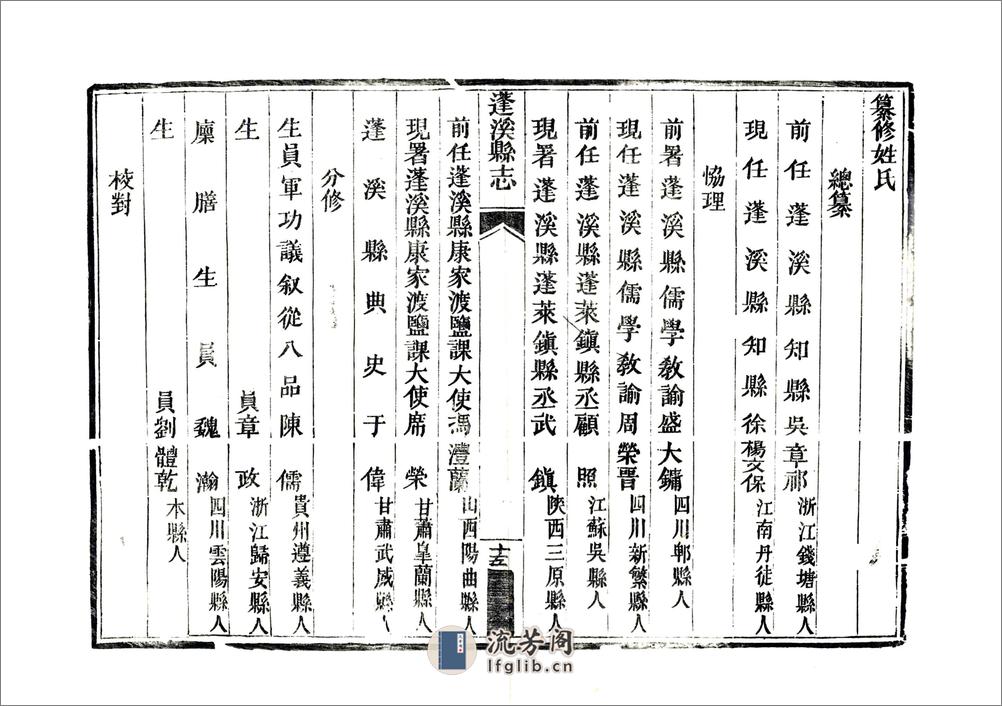 纂修姓氏
總纂
前任蓬溪縣知縣吳章祁浙江錢塘縣人
現任蓬溪縣知縣徐楊文保江南丹徒縣人
恊理
前署蓬溪縣儒學教諭盛大鏞四川郫縣人
現任蓬溪縣儒學教諭周榮晋四川新繁縣人
前任蓬溪縣蓬萊鎮縣丞顧照江蘇吳縣人
現署蓬溪縣蓬萊鎮縣丞武鎮陝西三原縣人
蓬溪縣志
十五
前任蓬溪縣康家渡鹽課大使馮澧蘭山西陽曲縣人
現署蓬溪縣康家渡鹽課大使席榮甘肅皐蘭縣人
蓬溪縣典史于偉甘肅武威縣人
分修
生員軍功議叙從八品陳儒貴州遵義縣人
生員章政浙江歸安縣人
廩膳生員魏瀚四川雲陽縣人
生員劉體乾本縣人
校對
流芳阁
lfglib.cn